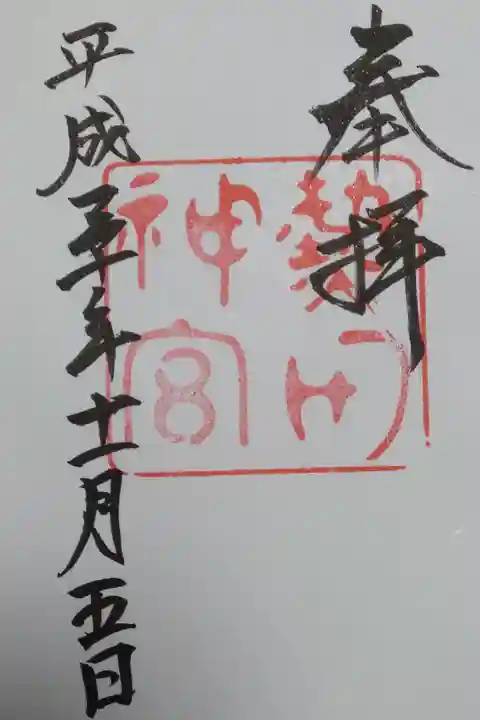 奉拝
熱田
神宮
平成三十年十一月五日